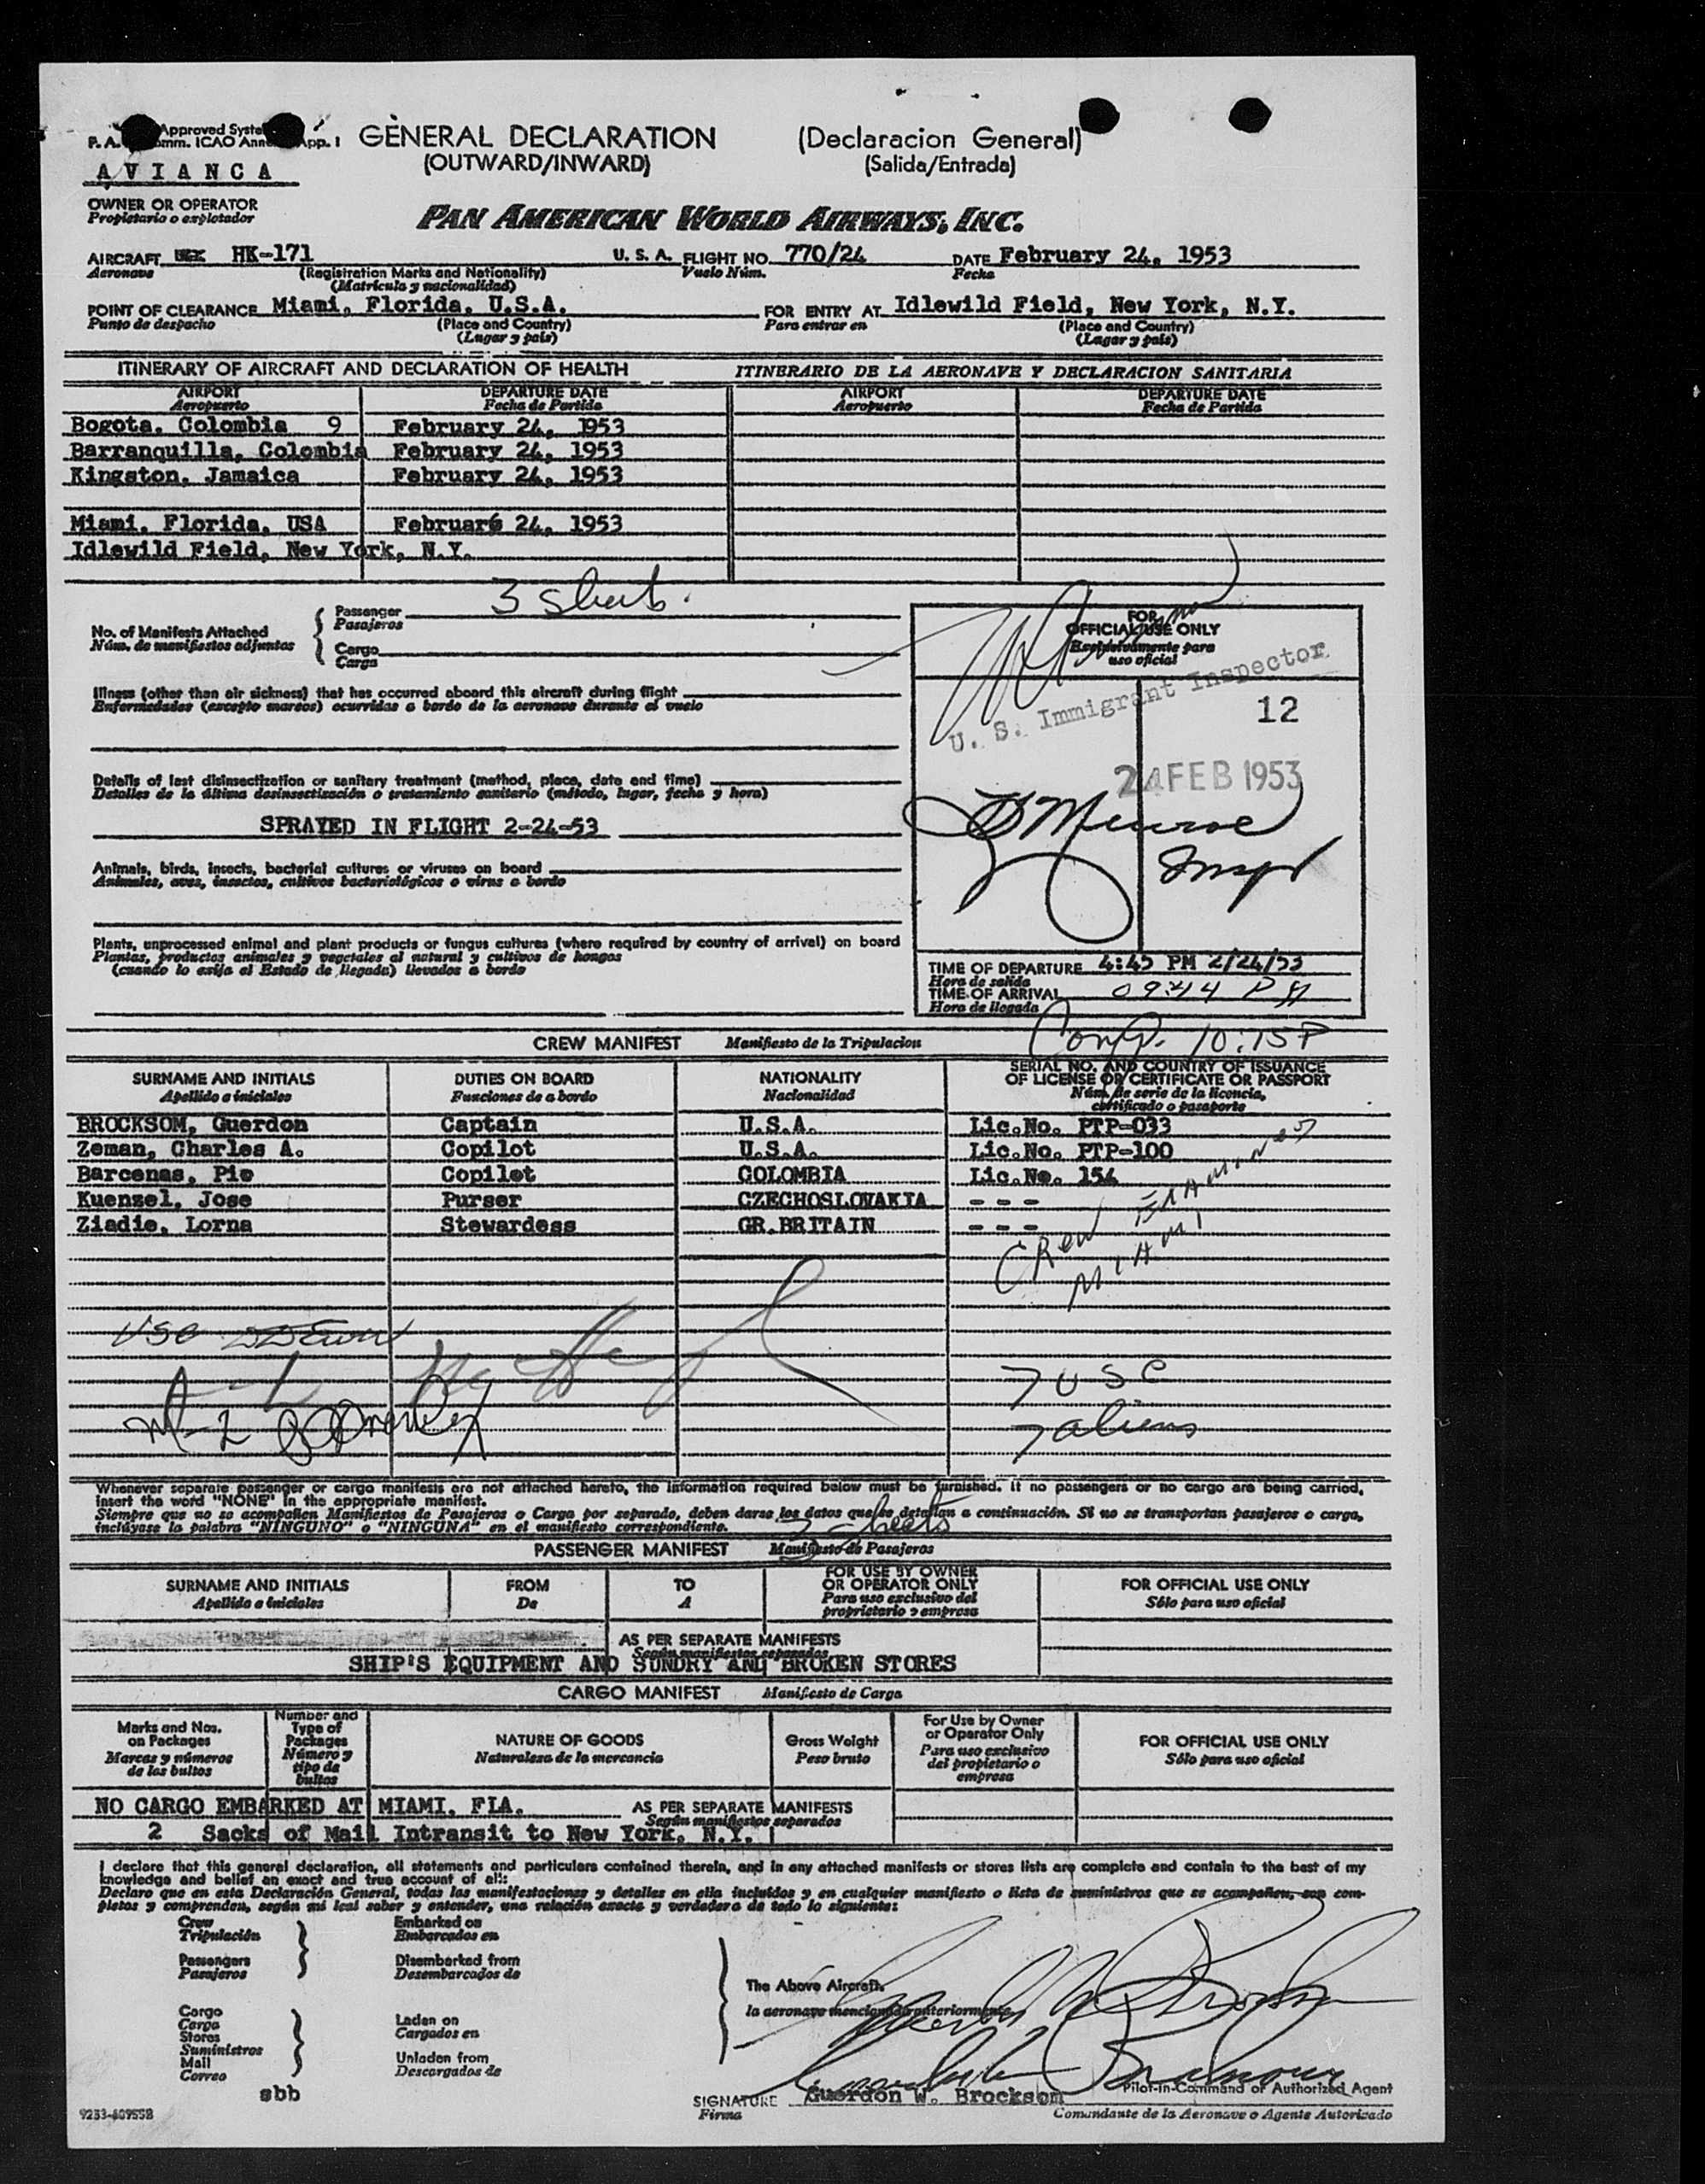 Approved Syste
P. A. omm. ICAO Ann App. I
GENERAL DECLARATION (Declaracion General)
(OUTWARD/INWARD) (Salida/Entrada)
AVIANCA
OWNER OR OPERATOR
Propietario o explotador
PAN AMERICAN WORLD AIRWAYS, INC.
AIRCRAFT HK-171 U. S. A. FLIGHT NO. 770/24 DATE February 24, 1953
Aeronave (Registration Marks and Nationality) Vuelo Núm. Fecha
(Matrícula y nacionalidad)
POINT OF CLEARANCE Miami, Florida, U.S.A. FOR ENTRY AT Idlewild Field, New York, N.Y.
Punto de despacho (Place and Country) Para entrar en (Place and Country)
(Lugar y país) (Lugar y país)
ITINERARY OF AIRCRAFT AND DECLARATION OF HEALTH ITINERARIO DE LA AERONAVE Y DECLARACION SANITARIA
AIRPORT DEPARTURE DATE AIRPORT DEPARTURE DATE
Aeropuerto Fecha de Partida Aeropuerto Fecha de Partida
Bogota, Colombia 9 February 24, 1953
Barranquilla, Colombia February 24, 1953
Kingston, Jamaica February 24, 1953
Miami, Florida, USA Februar6 24, 1953
Idlewild Field, New York, N.Y.
No. of Manifests Attached
Núm. de manifiestos adjuntos
Passenger 3 sheets
Pasajeros
Cargo
Carga
FOR
OFFICIAL USE ONLY
Exclusivamente para
uso oficial
U. S. Immigrant Inspector
12
24 FEB 1953
Munroe
Inspr
Illness (other than air sickness) that has occurred aboard this aircraft during flight
Enfermedades (excepto mareos) ocurridas a bordo de la aeronave durante el vuelo
Details of last disinsectization or sanitary treatment (method, place, date and time)
Detalles de la última desinsectización o tratamiento sanitario (método, lugar, fecha y hora)
SPRAYED IN FLIGHT 2-24-53
Animals, birds, insects, bacterial cultures or viruses on board
Animales, aves, insectos, cultivos bacteriológicos o virus a bordo
Plants, unprocessed animal and plant products or fungus cultures (where required by country of arrival) on board
Plantas, productos animales y vegetales al natural y cultivos de hongos
(cuando lo exija el Estado de llegada) llevados a bordo
TIME OF DEPARTURE 4:45 PM 2/24/53
Hora de salida
TIME OF ARRIVAL 09:44 P
Hora de llegada
Comp. 10:15 P
CREW MANIFEST Manifiesto de la Tripulacion
SURNAME AND INITIALS DUTIES ON BOARD NATIONALITY SERIAL NO. AND COUNTRY OF ISSUANCE
OF LICENSE OR CERTIFICATE OR PASSPORT
Apellido e iniciales Funciones de a bordo Nacionalidad Núm. de serie de la licencia,
certificado o pasaporte
BROCKSOM, Guerdon Captain U.S.A. Lic.No. PTP-033
Zeman, Charles A. Copilot U.S.A. Lic.No. PTP-100
Barcenas, Pio Copilot COLOMBIA Lic.No. 154
Kuenzel, Jose Purser CZECHOSLOVAKIA - - -
Ziadie, Lorna Stewardess GR.BRITAIN - - -
CREW EXAMINED
MIAMI
USC
7 USC
7 aliens
Whenever separate passenger or cargo manifests are not attached hereto, the information required below must be furnished. If no passengers or no cargo are being carried,
insert the word "NONE" in the appropriate manifest.
Siempre que no se acompañen Manifiestos de Pasajeros o Carga por separado, deben darse los datos que se detallan a continuación. Si no se transportan pasajeros o carga,
inclúyase la palabra "NINGUNO" o "NINGUNA" en el manifiesto correspondiente.
3 sheets
PASSENGER MANIFEST Manifiesto de Pasajeros
SURNAME AND INITIALS FROM TO FOR USE BY OWNER
OR OPERATOR ONLY FOR OFFICIAL USE ONLY
Apellido e iniciales De A Para uso exclusivo del
propietario o empresa Sólo para uso oficial
AS PER SEPARATE MANIFESTS
Según manifiestos separados
SHIP'S EQUIPMENT AND SUNDRY AND BROKEN STORES
CARGO MANIFEST Manifiesto de Carga
Marks and Nos.
on Packages
Marcas y números
de los bultos
Number and
Type of
Packages
Número y
tipo de
bultos
NATURE OF GOODS
Naturaleza de la mercancia
Gross Weight
Peso bruto
For Use by Owner
or Operator Only
Para uso exclusivo
del propietario o
empresa
FOR OFFICIAL USE ONLY
Sólo para uso oficial
NO CARGO EMBARKED AT MIAMI, FLA. AS PER SEPARATE MANIFESTS
Según manifiestos separados
2 Sacks of Mail Intransit to New York, N.Y.
I declare that this general declaration, all statements and particulars contained therein, and in any attached manifests or stores lists are complete and contain to the best of my
knowledge and belief an exact and true account of all:
Declaro que en esta Declaración General, todas las manifestaciones y detalles en ella incluídos y en cualquier manifiesto o lista de suministros que se acompañen, son com-
pletos y comprenden, según mi leal saber y entender, una relación exacta y verdadera de todo lo siguiente:
Crew Embarked on
Tripulación Embarcados en
Passengers Disembarked from
Pasajeros Desembarcados de
The Above Aircraft.
la aeronave mencionada anteriormente.
Cargo
Carga
Stores
Suministros
Mail
Correo
Laden on
Cargados en
Unladen from
Descargados de
sbb
SIGNATURE Guerdon W. Brocksom Pilot-in-Command or Authorized Agent
Firma Comandante de la Aeronave o Agente Autorizado
9233-609552